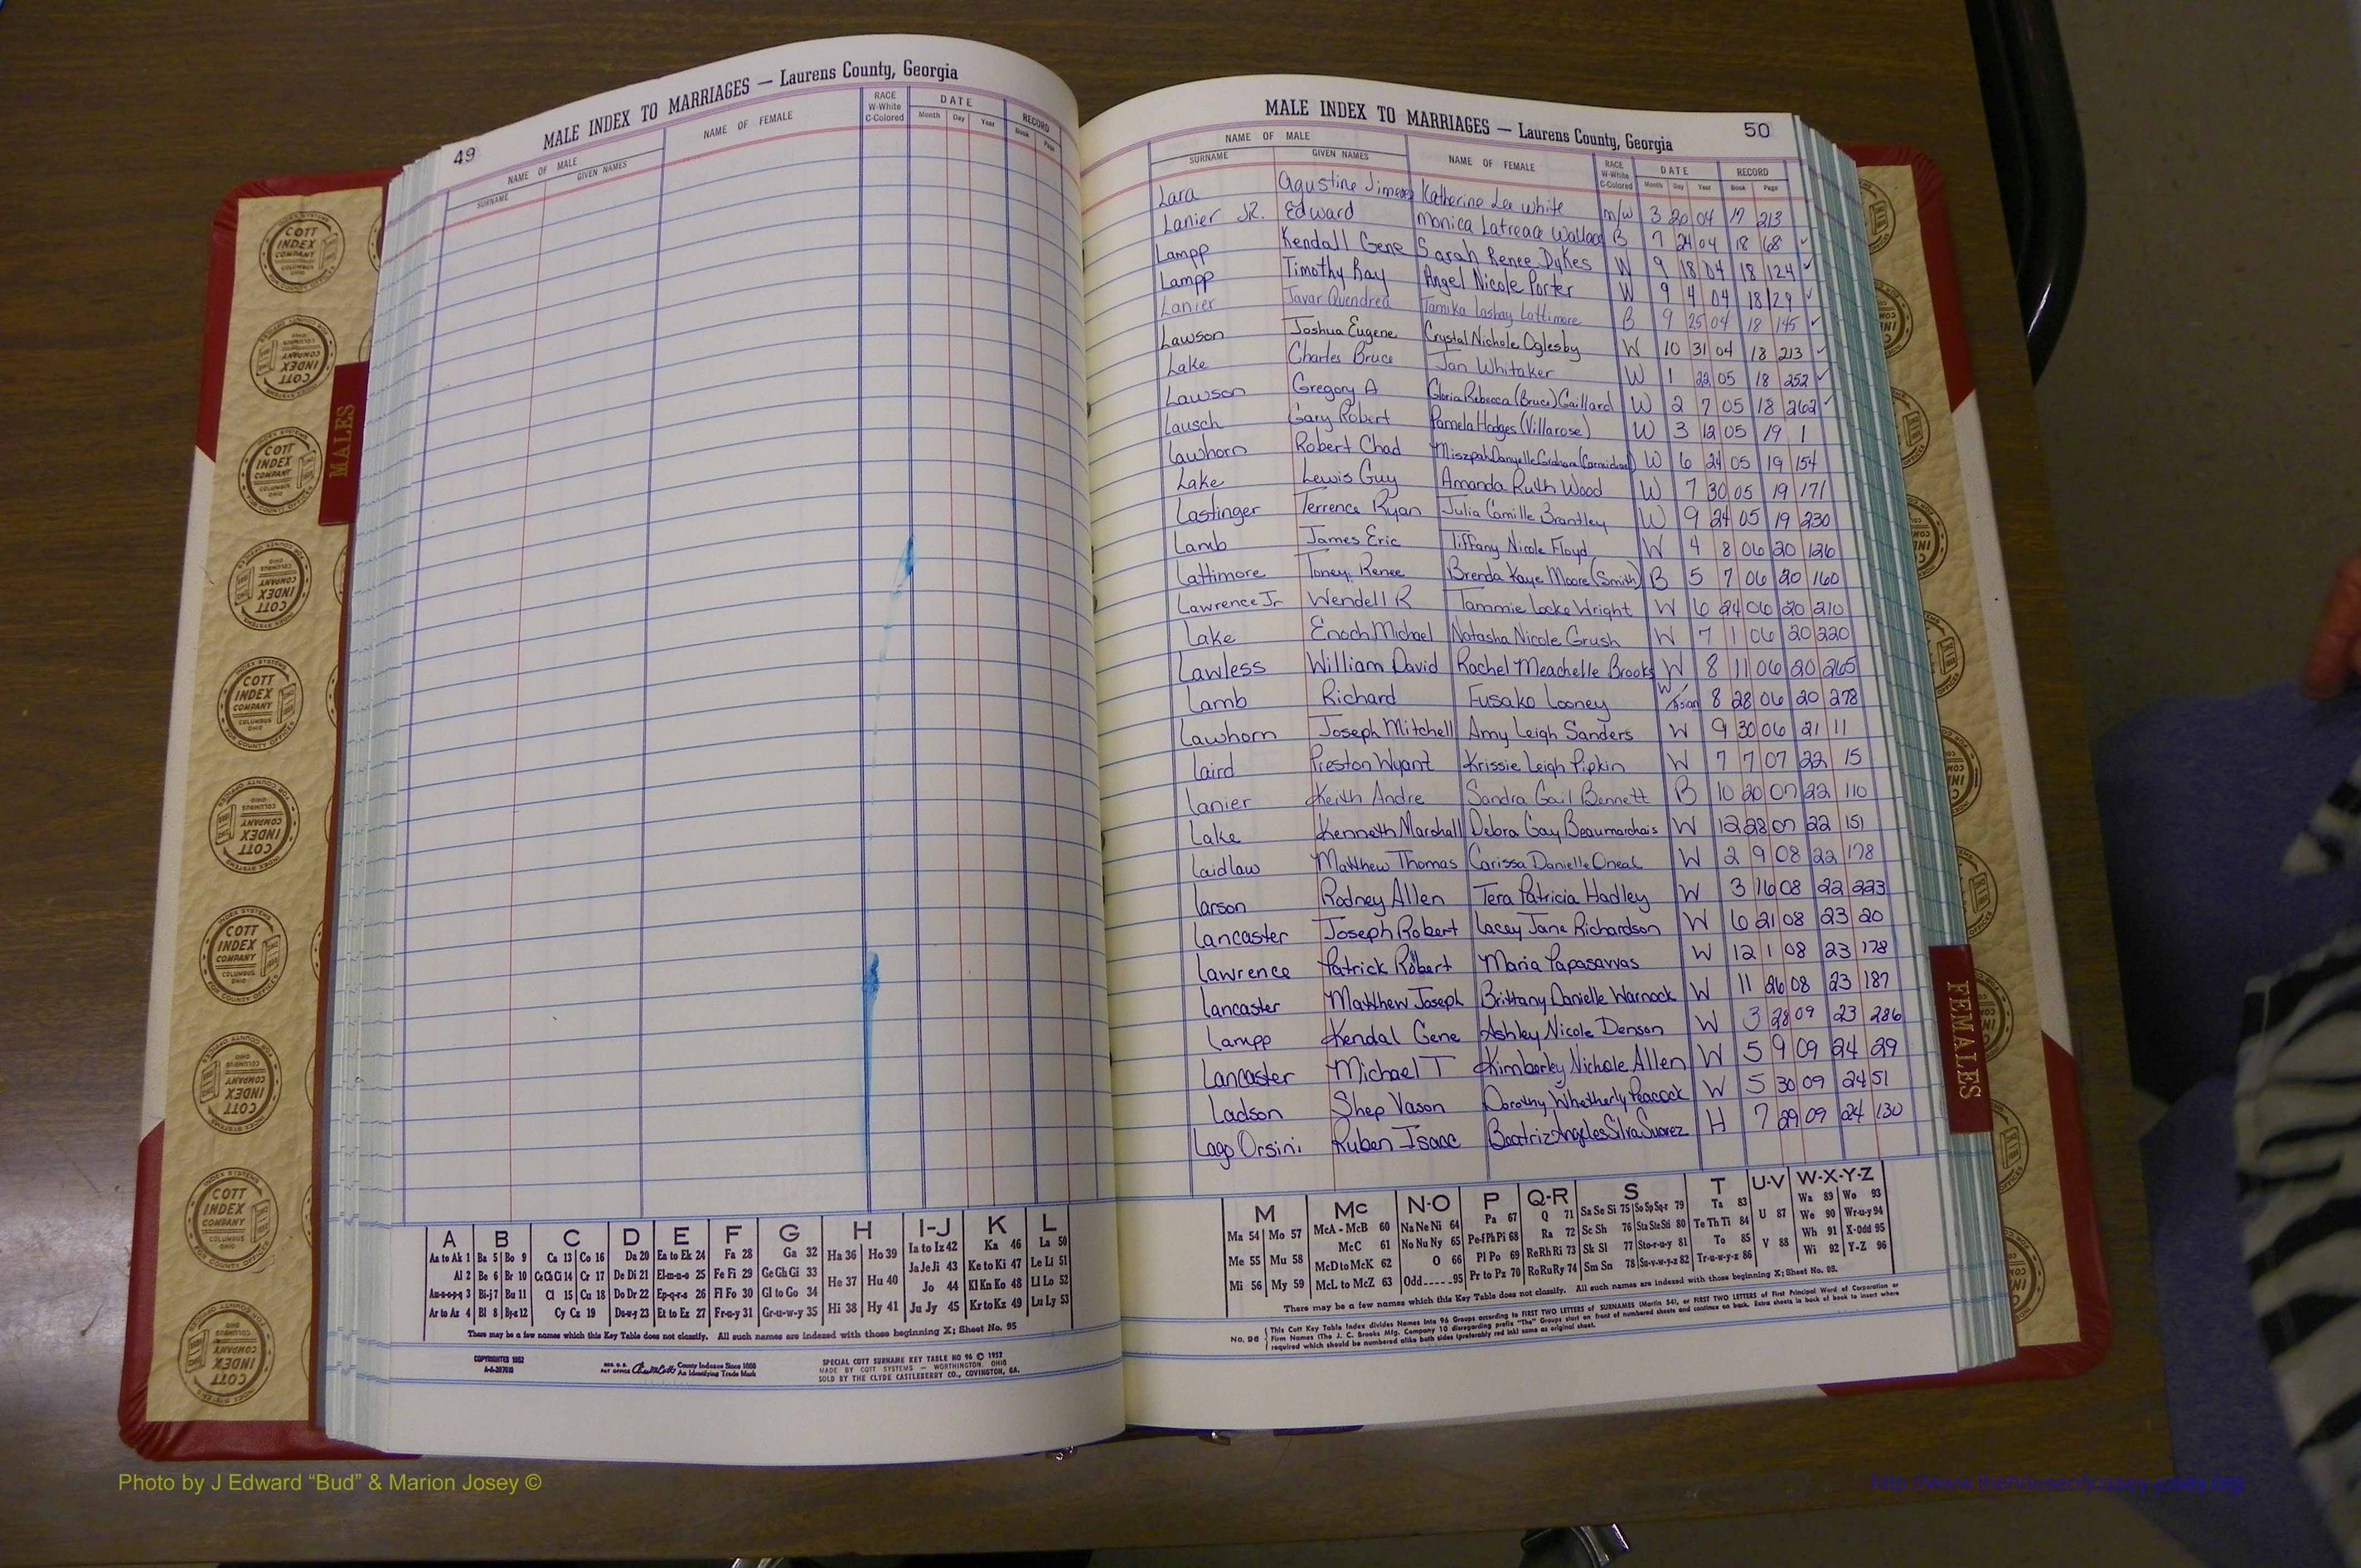 49
MALE INDEX TO MARRIAGES — Laurens County, Georgia
NAME OF MALE
SURNAME GIVEN NAMES
NAME OF FEMALE
RACE W-White C-Colored
DATE
Month Day Year
RECORD
Book Page
MALE INDEX TO MARRIAGES — Laurens County, Georgia 50
NAME OF MALE
SURNAME GIVEN NAMES
NAME OF FEMALE
RACE W-White C-Colored
DATE
Month Day Year
RECORD
Book Page
Lara Agustine Jimenez Katherine Lea White M/W 3 20 04 17 213
Lanier JR. Edward Monica Latreace Wallace B 7 24 04 18 68 ✓
Lampp Kendall Gene Sarah Renee Dykes W 9 18 04 18 124 ✓
Lampp Timothy Ray Angel Nicole Porter W 9 4 04 18 129 ✓
Lanier Javar Quendrea Tamika Lashay Lattimore B 9 25 04 18 145 ✓
Lawson Joshua Eugene Crystal Nichole Oglesby W 10 31 04 18 213 ✓
Lake Charles Bruce Jan Whitaker W 1 22 05 18 252 ✓
Lawson Gregory A Gloria Rebecca (Bruce) Gaillard W 2 7 05 18 262 ✓
Lausch Gary Robert Pamela Hodges (Villarose) W 3 12 05 19 1
Lawhorn Robert Chad Miszpah Danyelle Graham (Carmichael) W 6 24 05 19 154
Lake Lewis Guy Amanda Ruth Wood W 7 30 05 19 171
Lastinger Terrence Ryan Julia Camille Brantley W 9 24 05 19 230
Lamb James Eric Tiffany Nicole Floyd W 4 8 06 20 126
Lattimore Toney Renee Brenda Kaye Moore (Smith) B 5 7 06 20 160
Lawrence Jr Wendell R Tammie Locke Wright W 6 24 06 20 210
Lake Enoch Michael Natasha Nicole Grush W 7 1 06 20 220
Lawless William David Rachel Meachelle Brooks W 8 11 06 20 265
Lamb Richard Fusako Looney W/Asian 8 28 06 20 278
Lawhorn Joseph Mitchell Amy Leigh Sanders W 9 30 06 21 11
Laird Preston Wyant Krissie Leigh Pipkin W 7 7 07 22 15
Lanier Keith Andre Sandra Gail Bennett B 10 20 07 22 110
Lake Kenneth Marshall Debra Gay Beaumarchais W 12 28 07 22 151
Laidlaw Matthew Thomas Carissa Danielle Oneal W 2 9 08 22 178
Larson Rodney Allen Tera Patricia Hadley W 3 16 08 22 223
Lancaster Joseph Robert Lacey Jane Richardson W 6 21 08 23 20
Lawrence Patrick Robert Maria Papasavvas W 12 1 08 23 178
Lancaster Matthew Joseph Brittany Danielle Warnock W 11 26 08 23 187
Lampp Kendal Gene Ashley Nicole Denson W 3 28 09 23 286
Lancaster Michael T Kimberley Nichole Allen W 5 9 09 24 29
Ladson Shep Vason Dorothy Whetherly Peacock W 5 30 09 24 51
Lago Orsini Ruben Isaac Beatriz Angeles Silva Suarez H 7 29 09 24 130
A B C D E F G H I-J K L
Aa to Ak 1 Ba 5 Bo 9 Ca 13 Co 16 Da 20 Ea to Ek 24 Fa 28 Ga 32 Ha 36 Ho 39 Ia to Iz 42 Ka 46 La 50
Al 2 Be 6 Br 10 Ce Ch Ci 14 Cr 17 De Di 21 El-m-n-o 25 Fe Fi 29 Ge Gh Gi 33 He 37 Hu 40 Ja Je Ji 43 Ke to Ki 47 Le Li 51
Am-n-o-p-q 3 Bi-j 7 Bu 11 Cl 15 Cu 18 Do Dr 22 Ep-q-r-s 26 Fl Fo 30 Gl to Go 34 Jo 44 Kl Kn Ko 48 Ll Lo 52
Ar to Az 4 Bl 8 By-z 12 Cy Cz 19 Du-w-y 23 Et to Ez 27 Fr-u-y 31 Gr-u-w-y 35 Hi 38 Hy 41 Ju Jy 45 Kr to Kz 49 Lu Ly 53
There may be a few names which this Key Table does not classify. All such names are indexed with those beginning X; Sheet No. 95
COPYRIGHTED 1952
REG. U.S. PAT OFFICE County Indexes Since 1888 An Identifying Trade Mark
SPECIAL COTT SURNAME KEY TABLE NO 96 © 1957
MADE BY COTT SYSTEMS — WORTHINGTON, OHIO
SOLD BY THE CLYDE CASTLEBERRY CO., COVINGTON, GA.
M Mc N-O P Q-R S T U-V W-X-Y-Z
Ma 54 Mo 57 McA - McB 60 Na Ne Ni 64 Pa 67 Q 71 Sa Se Si 75 So Sp Sq-r 79 Ta 83 U 87 Wa 89 Wo 93
Me 55 Mu 58 McC 61 No Nu Ny 65 Pe-f Ph Pi 68 Ra 72 Sc Sh 76 Sta Ste Sti 80 Te Th Ti 84 We 90 Wr-u-y 94
McD to McK 62 O 66 Pl Po 69 Re Rh Ri 73 Sk Sl 77 Sto-r-u-y 81 To 85 V 88 Wh 91 X-Odd 95
Mi 56 My 59 McL to McZ 63 Odd-----95 Pr to Pz 70 Ro Ru Ry 74 Sm Sn 78 Su-v-w-y-z 82 Tr-u-w-y-z 86 Wi 92 Y-Z 96
There may be a few names which this Key Table does not classify. All such names are indexed with those beginning X; Sheet No. 95.
No. 96 This Cott Key Table Index divides Names into 96 Groups according to FIRST TWO LETTERS of SURNAMES (Martin 54), or FIRST TWO LETTERS of First Principal Word of Corporation or
Firm Names (The J. C. Brooks Mfg. Company 10 disregarding prefix "The" Groups start on front of numbered sheets and continue on back. Extra sheets in back of book to insert where
required which should be numbered alike both sides (preferably red ink) same as original sheet.
MALES
FEMALES
COTT INDEX COMPANY COLUMBUS OHIO
INDEX SYSTEMS FOR COUNTY OFFICES
Photo by J Edward “Bud” & Marion Josey ©